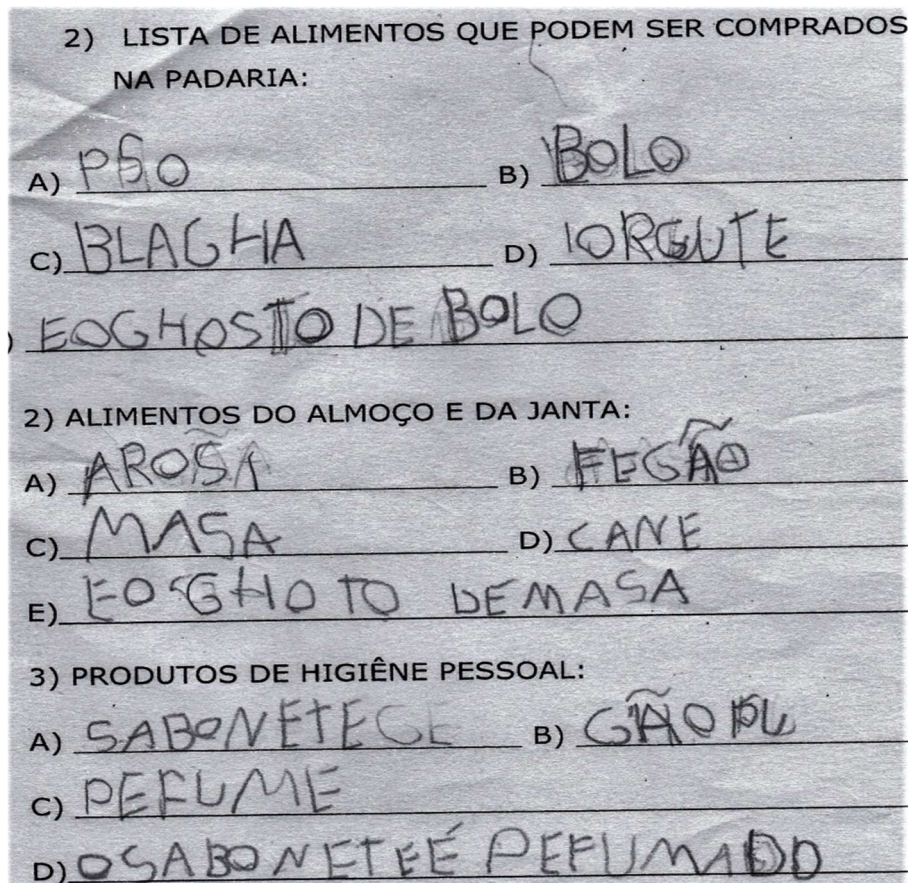 2) LISTA DE ALIMENTOS QUE PODEM SER COMPRADOS
NA PADARIA:
A) PSO B) BOLO
C) BLAGHA D) IORGUTE
) EOGHOSTO DE BOLO
2) ALIMENTOS DO ALMOÇO E DA JANTA:
A) AROSA B) FEGÃO
C) MASA D) CANE
E) EOSGHOTO DEMASA
3) PRODUTOS DE HIGIÊNE PESSOAL:
A) SABONETE B) GÃOPU
C) PEFUME
D) OSABONETEÉ PEFUMADO